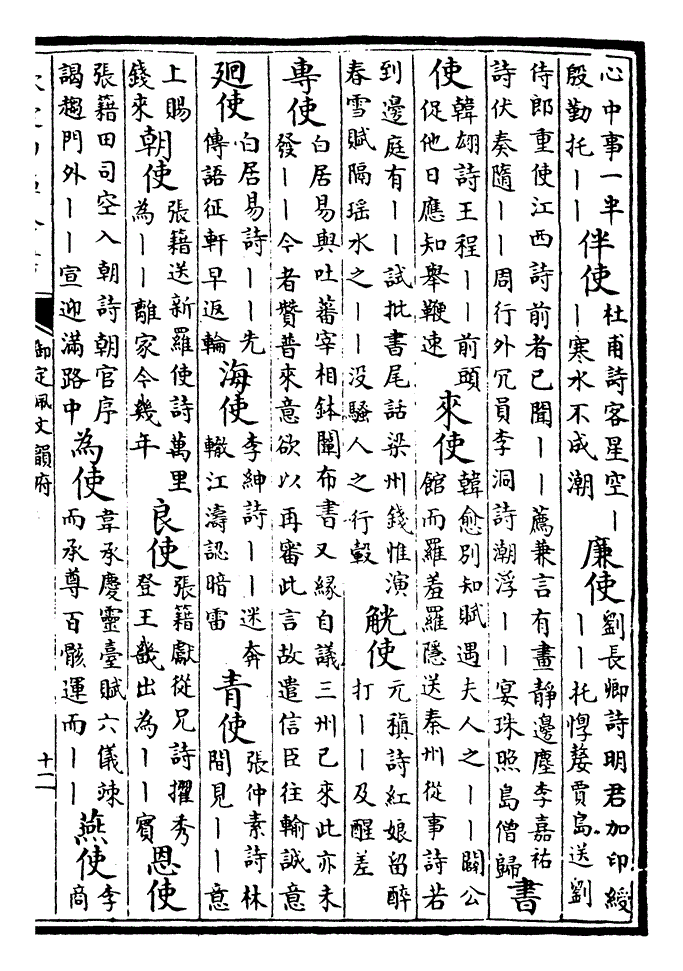 心中事一半
殷勤托丨丨
伴使
杜甫詩客星空丨
丨寒水不成潮
廉使
劉長卿詩明君加印綬
丨丨托惸嫠賈島送劉
侍郎重使江西詩前者已聞丨丨薦兼言有畫靜邊塵李嘉祐
詩伏奏隨丨丨周行外冗員李洞詩潮浮丨丨宴珠照島僧歸
書
使
韓翃詩王程丨丨前頭
促他日應知舉鞭速
來使
韓愈別知賦遇夫人之丨丨闢公
館而羅羞羅隱送秦州從事詩若
到邊庭有丨丨試批書尾話梁州錢惟演
春雪賦隔瑶水之丨丨没騷人之行轂
觥使
元稹詩紅娘留醉
打丨丨及醒差
專使
白居易與吐蕃宰相鉢闡布書又緣自議三州已來此亦未
發丨丨今者贊普來意欲以再審此言故遣信臣往輸誠意
廻使
白居易詩丨丨先
傳語征軒早返輪
海使
李紳詩丨丨迷奔
轍江濤認暗雷
青使
張仲素詩林
間見丨丨意
上賜
錢來
朝使
張籍送新羅使詩萬里
為丨丨離家今幾年
良使
張籍獻從兄詩擢秀
登王畿出為丨丨賓
恩使
張籍田司空入朝詩朝官序
謁趨門外丨丨宣迎滿路中
為使
韋承慶靈臺賦六儀竦
而承尊百骸運而丨丨
燕使
李
商
御定佩文韻府
十二